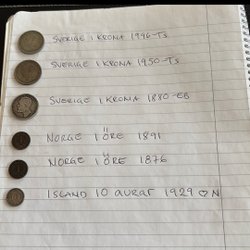 SVERIGE 1 KRONA 1946-TS
SVERIGE 1 KRONA 1950-TS
SVERIGE 1 KRONA 1880-EB
NORGE 1 ÖRE 1891
NORGE 1 ÖRE 1876
ISLAND 10 AURAR 1929 ♡N